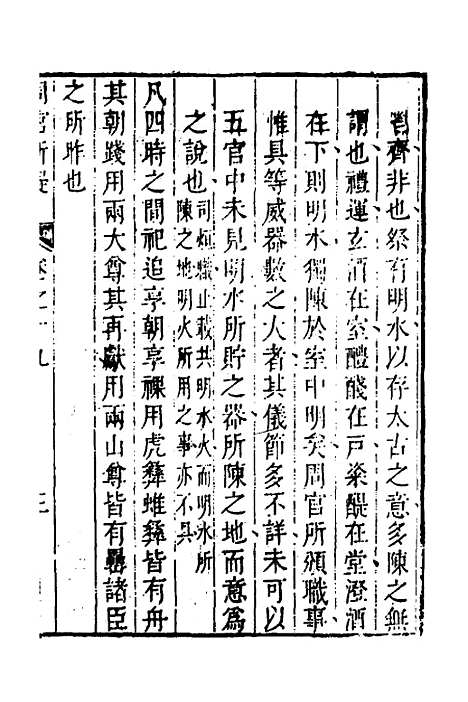 齊非也祭有明水以存太古之意多陳之無
謂也禮運玄酒在室醴醆在戶粢醍在堂澄酒
在下則明水獨陳於室中明矣周官所頒職事
惟具等威器數之大者其儀節多不詳未可以
五官中未見明水所貯之器所陳之地而意為
之說也司烜職止載共明水火而明水所陳之地明火所用之事亦不具
凡四時之間祀追享朝享祼用虎彝蜼彝皆有舟
其朝踐用兩大尊其再獻用兩山尊皆有罍諸臣
之所昨也
周官析疑
卷之十九
三